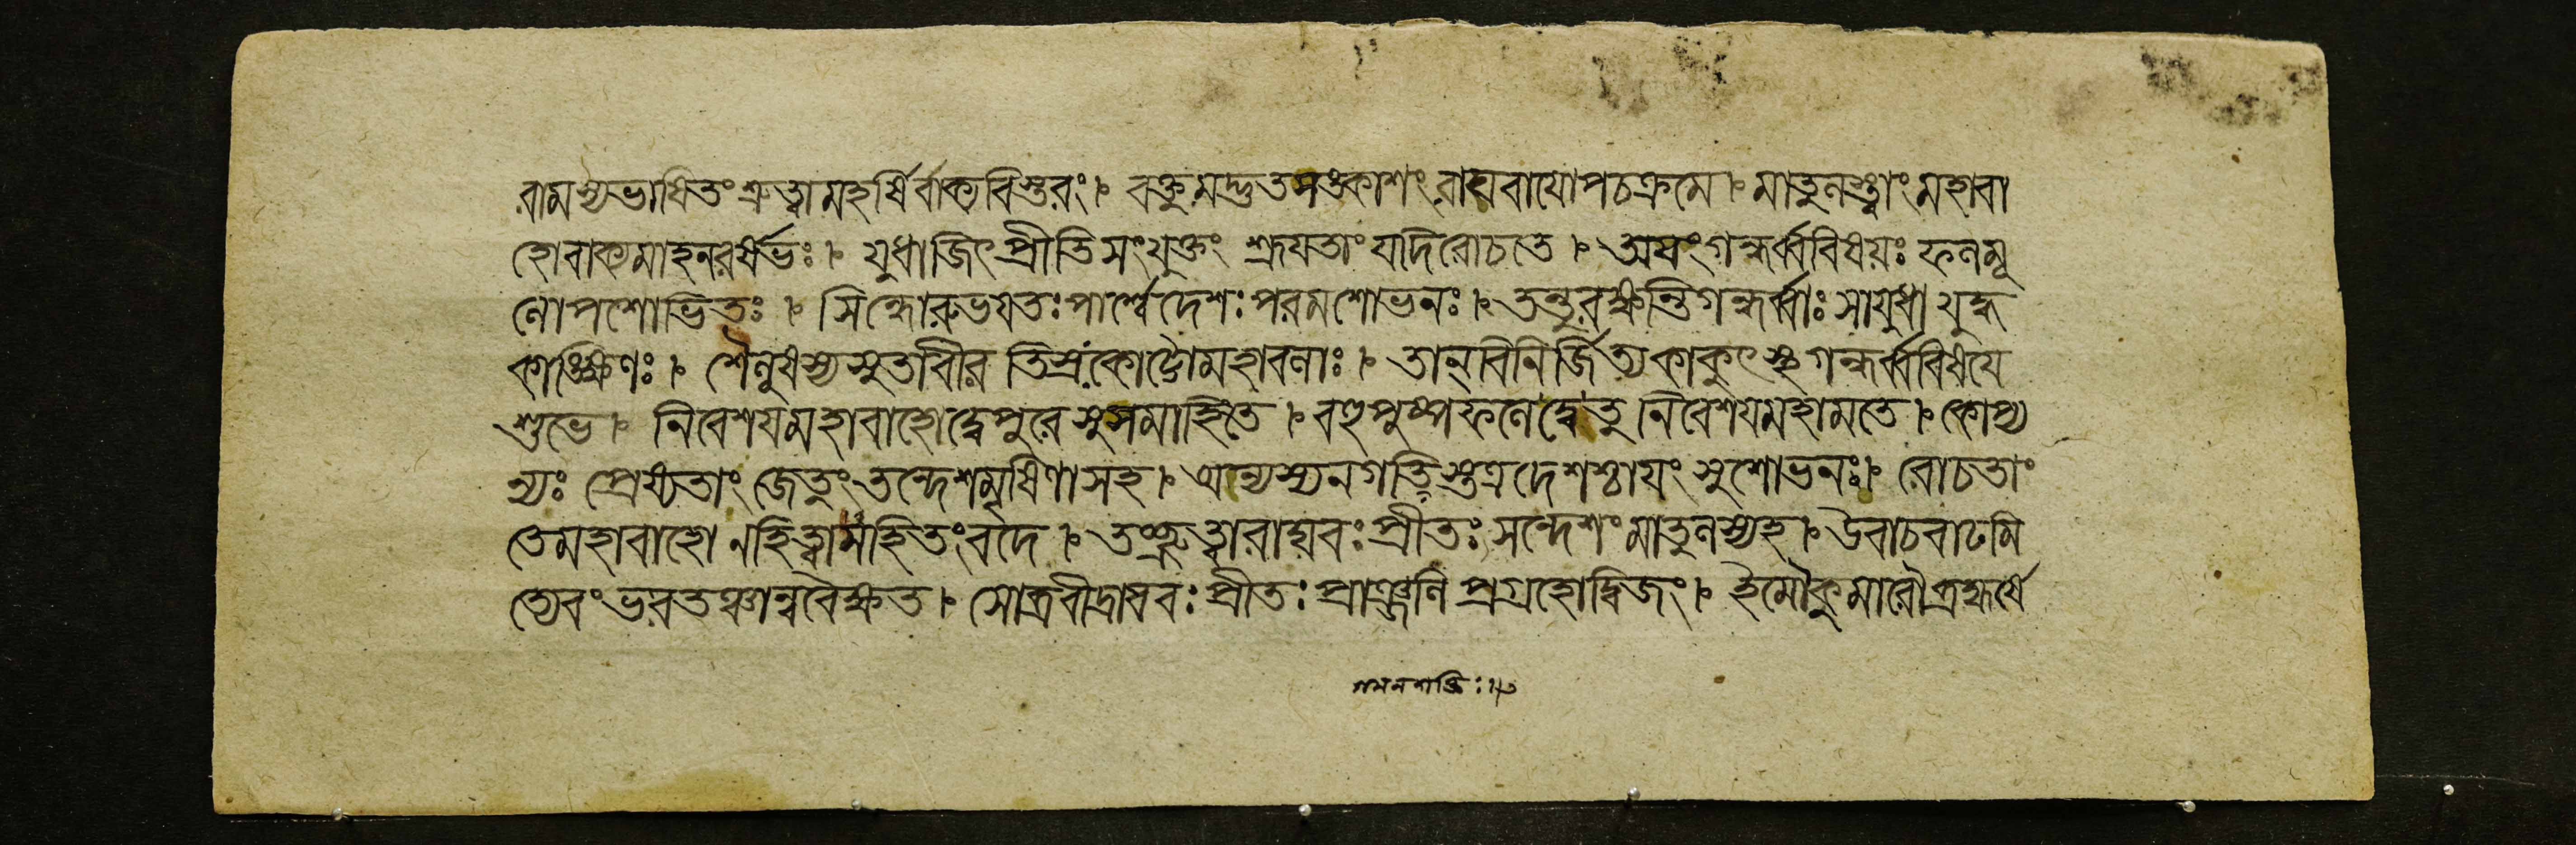 রামস্যভাষিতংশ্রুত্বামহর্ষির্বাক্যবিস্তরং। বক্তুমদ্ভুতসঙ্কাশংরাঘবাযোপচক্রমে। মাতুলস্ত্বাংমহাবা
হোবাক্যমাহনরর্ষভঃ। যুধাজিৎপ্রীতিসংযুক্তং শ্রূযতাংযদিরোচতে। অযংগন্ধর্ব্ববিষয়ঃ ফলমূ
লোপশোভিতঃ। সিন্ধোরুভযতঃপার্শ্বেদেশঃপরমশোভনঃ। তন্তুরক্ষন্তিগন্ধর্ব্বাঃ সাযুধাযুদ্ধ
কাঙ্ক্ষিণঃ। শৈলুষস্যসুতাবীর তিস্রঃকোট্যোমহাবলাঃ। তান্‌বিনির্জিত্যকাকুৎস্থগন্ধর্ব্ববিষযে
শুভে। নিবেশযমহাবাহোদ্বেপুরেসুসমাহিতে। বহুপুষ্পফলেদ্বেতু নিবেশযমহামতে। কোপ্য
ন্যঃ প্রেষ্যতাংজেতুংতন্দেশমৃষিণাসহ। অন্যস্যনগতিস্তত্রদেশশ্চাযংসুশোভনঃ। রোচতাং
তেমহাবাহো নহিত্বামহিতংবদে। তচ্ছ্রুত্বারাঘবঃপ্রীতঃ সন্দেশংমাতুলস্যহ। উবাচবাঢমি
ত্যেবংভরতঞ্চান্ববৈক্ষত। সোব্রবীদ্রাঘবঃ প্রীতঃ প্রাঞ্জলিপ্রগ্রহোদ্বিজং। ইমৌকুমারৌব্রহ্মর্ষে
গমনশক্তিঃ